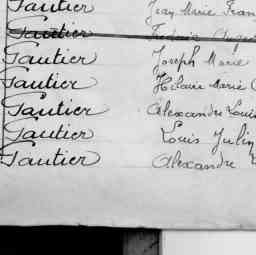 Gautier Jean Marie Fran
Gautier
Gautier Joseph Marie
Gautier Hilaire Marie
Gautier Alexandre Louis
Gautier Louis Julin
Gautier Alexandre